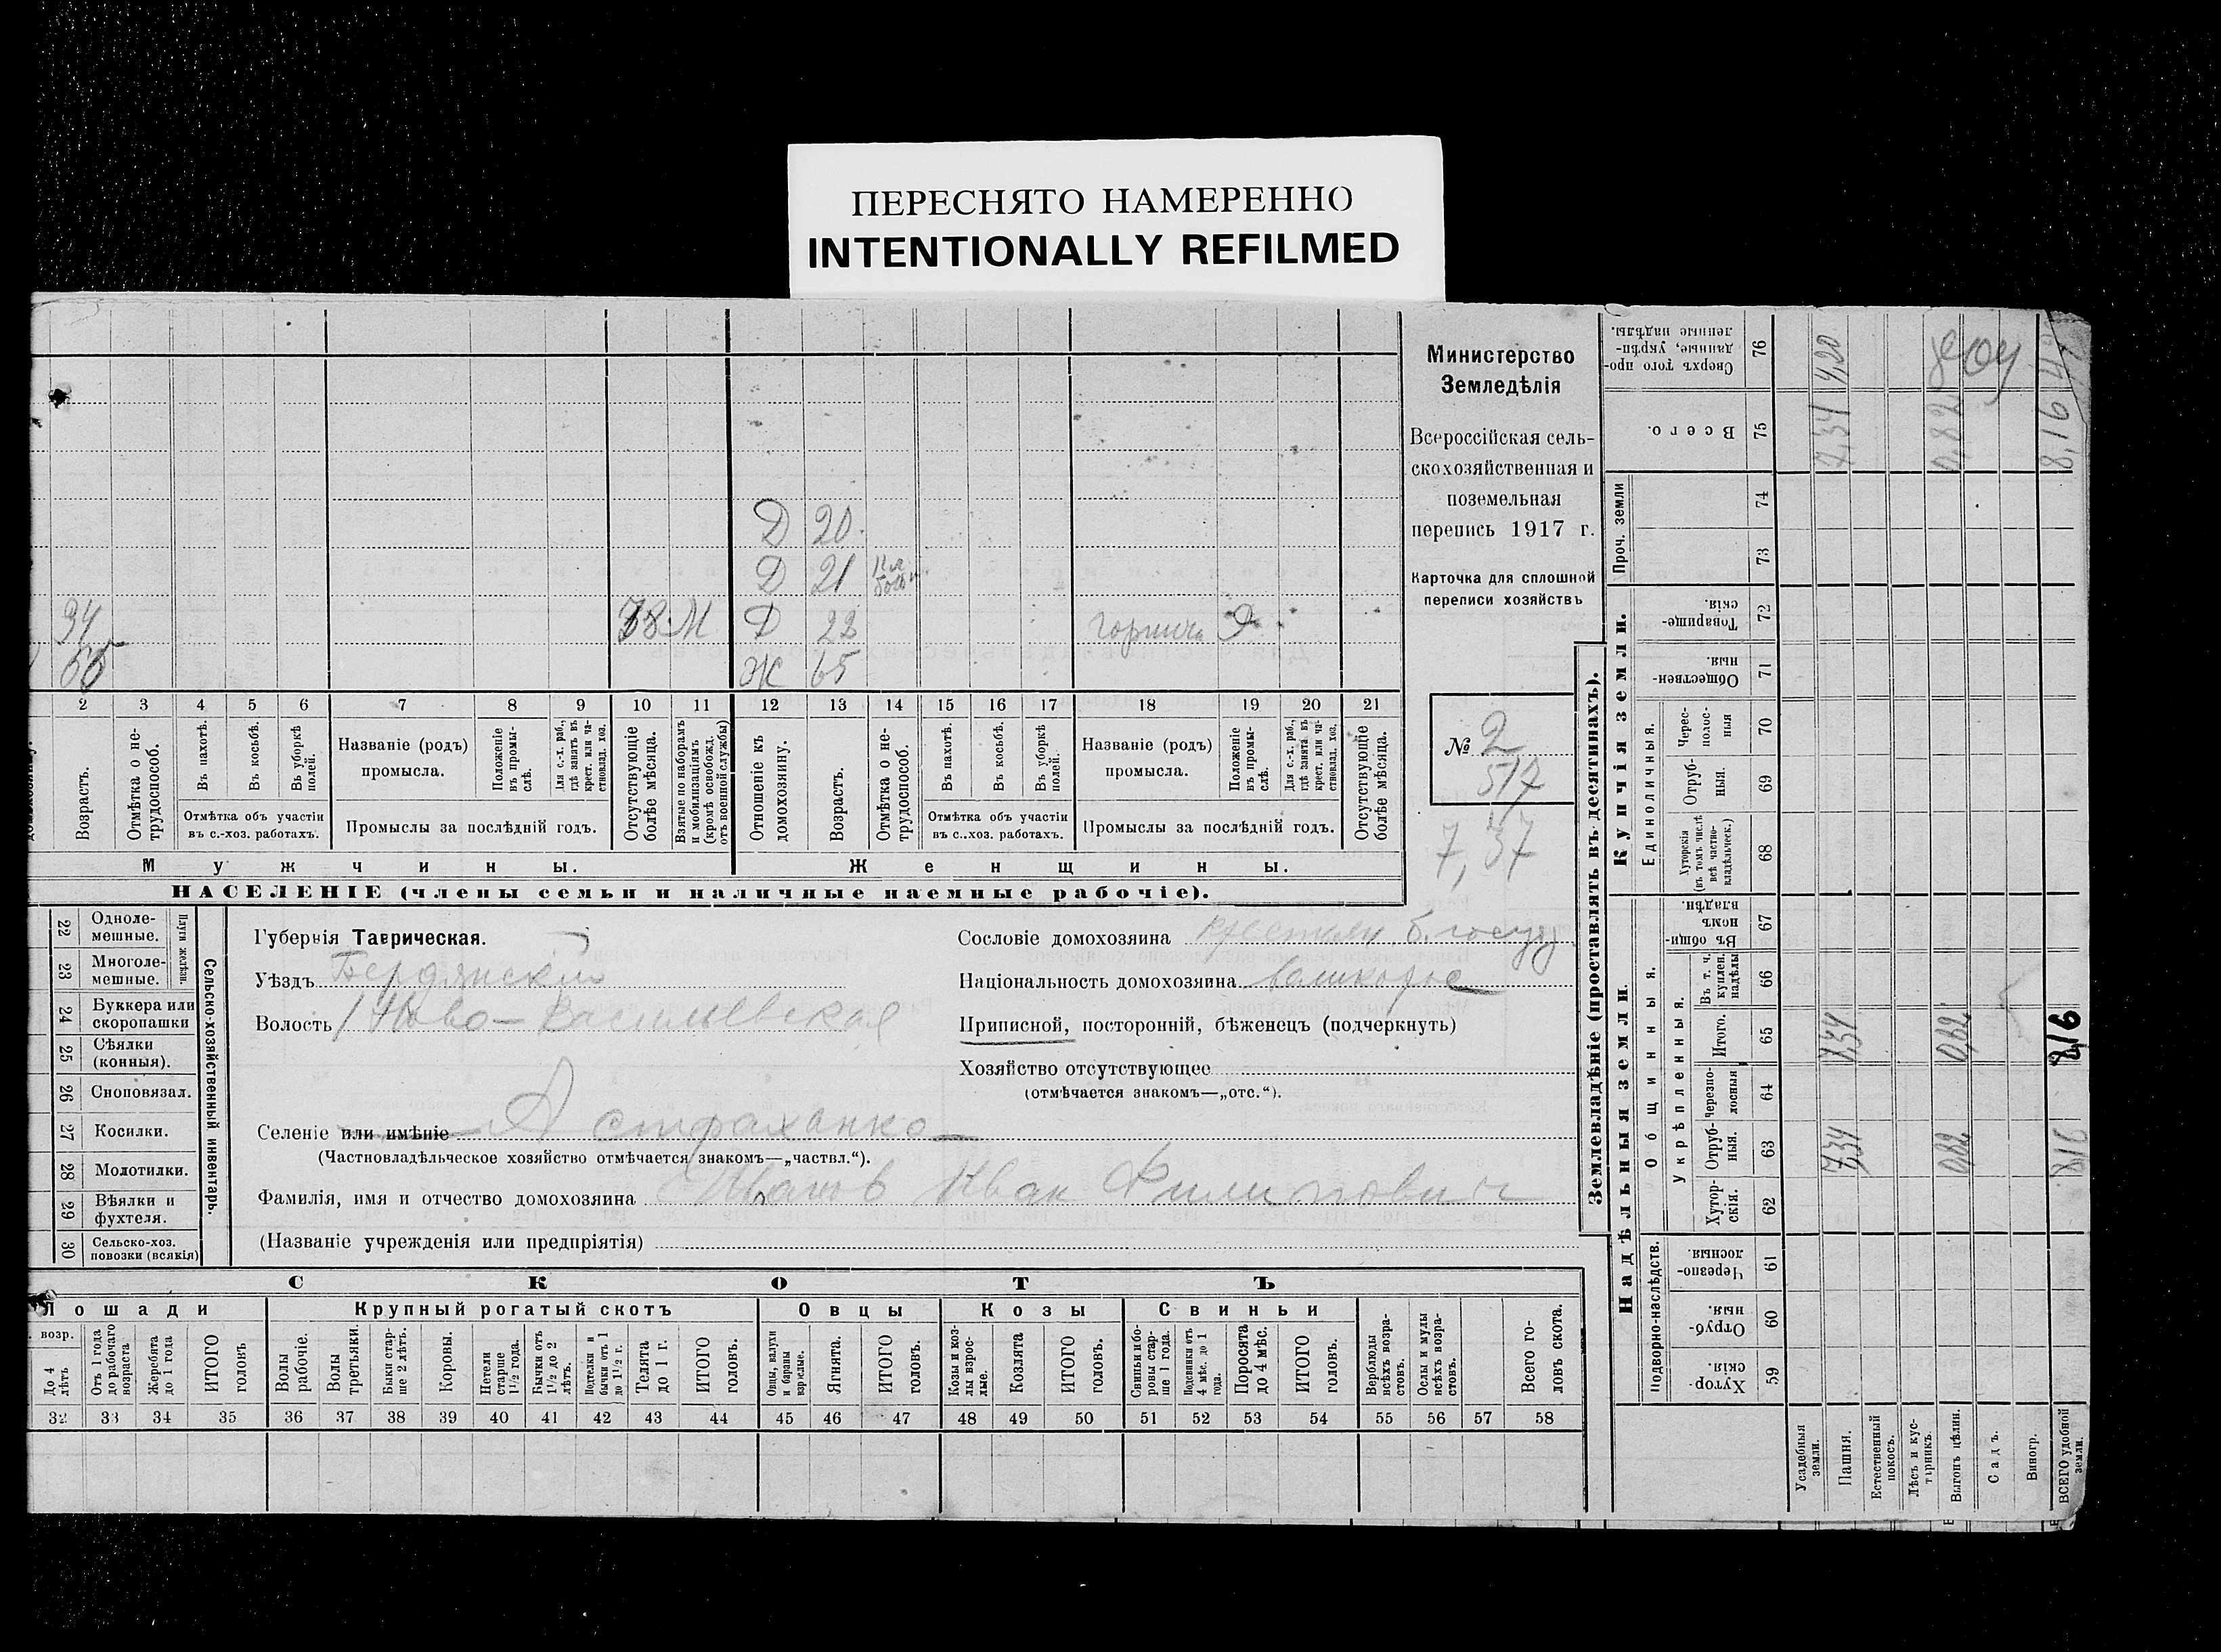 ПЕРЕСНЯТО НАМЕРЕННО
INTENTIONALLY REFILMED
Д 20
Д 21
34 38 М Д 22 Я
55 Ж 65
2 3 4 5 6 7 8 9 10 11 12 13 14 15 16 17 18 19 20 21
Возрастъ.
Отмѣтка о не-
трудоспособ.
Въ пахотѣ.
Въ косьбѣ.
Въ уборкѣ
полей.
Отмѣтка объ участіи
въ с.-хоз. работахъ.
Названіе (родъ)
промысла.
Положеніе
въ промы-
слѣ.
Для с.-х. раб.,
гдѣ занятъ въ
крест. или ча-
стновлад. хоз.
Промыслы за послѣдній годъ.
Отсутствующіе
болѣе мѣсяца.
Взятые по наборамъ
и мобилизаціямъ
(кромѣ освобожд.
отъ военной службы)
Отношеніе къ
домохозяину.
Возрастъ.
Отмѣтка о не-
трудоспособ.
Въ пахотѣ.
Въ косьбѣ.
Въ уборкѣ
полей.
Отмѣтка объ участіи
въ с..хоз. работахъ.
Названіе (родъ)
промысла.
Положеніе
въ промы-
слѣ.
Для с.-х. раб.,
гдѣ занята въ
крест. или ча-
стновлад. хоз.
Промыслы за послѣдній годъ.
Отсутствующіе
болѣе мѣсяца.
Мужчины.
Женщины.
НАСЕЛЕНІЕ (члены семьи и наличные наемные рабочіе).
Министерство
Земледѣлія
Всероссійская сель-
скохозяйственная и
поземельная
перепись 1917 г.
Карточка для сплошной
переписи хозяйствъ
№ 2
517
7,37
22 Одноле-
мешные.
23 Многоле-
мешные.
Плуги желѣзн.
24 Буккера или
скоропашки
25 Сѣялки
(конныя).
26 Сноповязал.
27 Косилки.
28 Молотилки.
29 Вѣялки и
фухтеля.
30 Сельско-хоз.
повозки (всякія)
Сельско-хозяйственный инвентарь.
Губернія Таврическая.
Уѣздъ Бердянскій
Волость Ново-Васильевская
Селеніе или имѣніе Астраханка
(Частновладѣльческое хозяйство отмѣчается знакомъ—„частвл.“).
Фамилія, имя и отчество домохозяина Иван Филипович
(Названіе учрежденія или предпріятія)
Сословіе домохозяина
Національность домохозяина
Приписной, посторонній, бѣженецъ (подчеркнуть)
Хозяйство отсутствующее
(отмѣчается знакомъ—„отс.“).
СКОТЪ
Лошади
возр.
До 4
лѣтъ
Отъ 1 года
до рабочаго
возраста
Жеребята
до 1 года
ИТОГО
головъ
Крупный рогатый скотъ
Волы
рабочіе.
Волы
третьяки.
Быки стар-
ше 2 лѣтъ.
Коровы.
Нетели
старше
1½ года.
Бычки отъ
1½ до 2
лѣтъ.
Подтелки и
бычки отъ 1
до 1½ г.
Телята
до 1 г.
ИТОГО
головъ.
Овцы
Овцы, валухи
и бараны
взрослые.
Ягнята.
ИТОГО
головъ.
Козы
Козы и коз-
лы взрос-
лые.
Козлята
ИТОГО
головъ.
Свиньи
Свиньи бо-
ровы стар-
ше 1 года.
Подсвинки отъ
4 мѣс. до 1
года.
Поросята
до 4 мѣс.
ИТОГО
головъ.
Верблюды
всѣхъ возра-
стовъ.
Ослы и мулы
всѣхъ возра-
стовъ.
Всего го-
ловъ скота.
32 33 34 35 36 37 38 39 40 41 42 43 44 45 46 47 48 49 50 51 52 53 54 55 56 57 58
Землевладѣніе (проставлять въ десятинахъ).
Надѣльныя земли.
Подворно-наслѣдств.
Хутор-
скія.
59
Отруб-
ныя.
60
Черезпо-
лосныя.
61
Общинныя.
Укрѣпленныя.
Хутор-
скія.
62
Отруб-
ныя.
63
Черезпо-
лосныя
64
Итого.
65
Въ т. ч.
куплен.
надѣлы
66
Въ общи-
номъ
владѣн.
67
Купчія земли.
Единоличныя.
Хуторскія
(въ томъ числѣ
всѣ частно-
владѣльческ.)
68
Отруб-
ныя.
69
Черес-
полос-
ныя
70
Обществен-
ныя.
71
Товарище-
скія.
72
Проч. земли
73
74
Всего.
75
Сверхъ того про-
данные, укрѣп-
ленные надѣлы.
76
Усадебныя
земли.
Пашня. 7,34 7,34 7,34 4,20
Естественный
покосъ.
Лѣсъ и кус-
тарникъ.
Выгонъ цѣлин. 0,82 0,82 0,82
Садъ.
Виногр.
ВСЕГО удобной
земли.
8,16 8,16 8,16